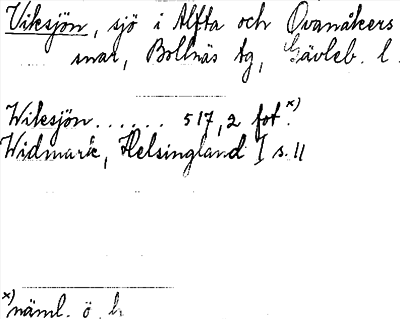 Viksjön, sjö i Alfta och Ovanåkers
snar, Bollnäs tg, Gävleb. l.
Wiksjön . . . . . . 517,2 fot. x)
Widmark, Helsingland I s. 11
x) näml. ö. h